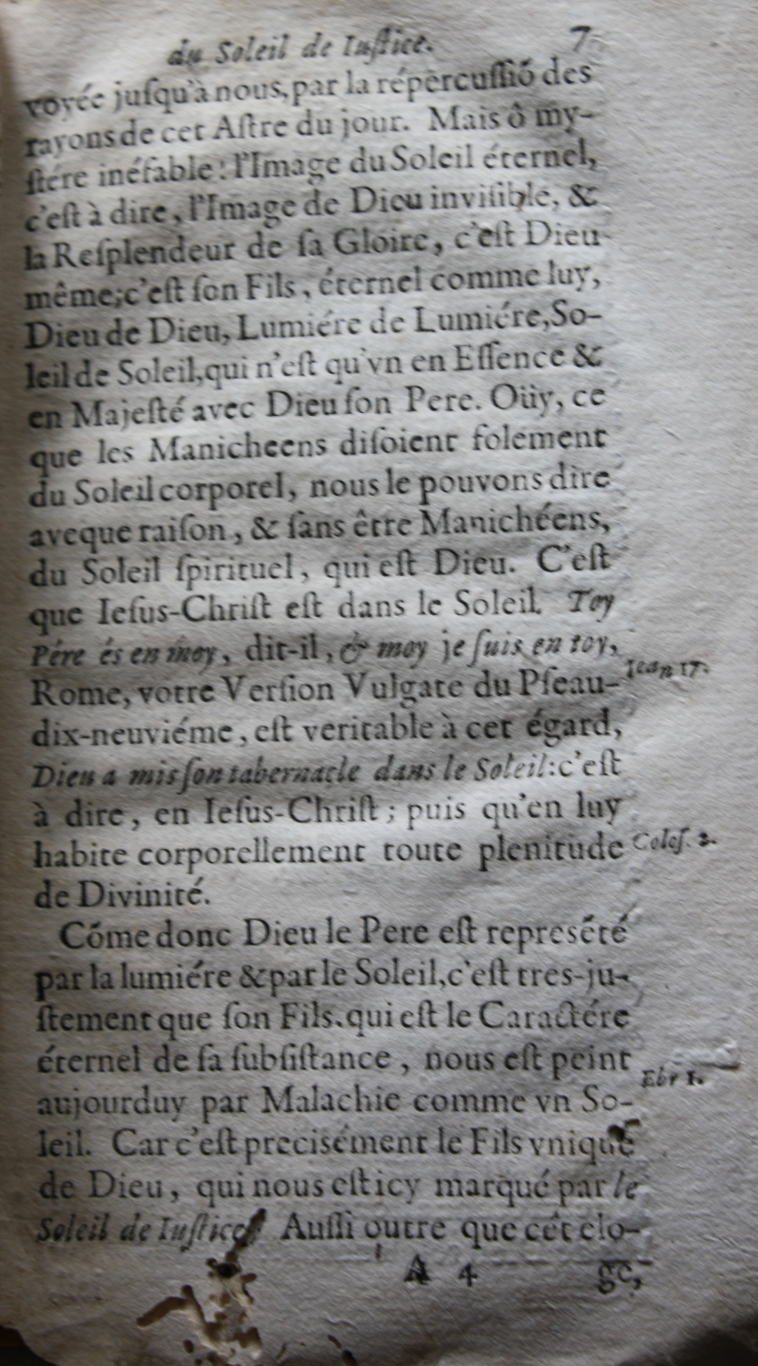 du Soleil de Iuſtice. 7
voyée juſqu'à nous, par la répercuſſió des
rayons de cet Aſtre du jour. Mais ô my-
ſtére inéfable! l'Image du Soleil éternel,
c'eſt à dire, l'Image de Dieu inviſible, &
la Reſplendeur de ſa Gloire, c'eſt Dieu
même; c'eſt ſon Fils, éternel comme luy,
Dieu de Dieu, Lumiére de Lumiére, So-
leil de Soleil, qui n'eſt qu'vn en Eſſence &
en Majeſté avec Dieu ſon Pere. Oüy, ce
que les Manicheens diſoient folement
du Soleil corporel, nous le pouvons dire
aveque raiſon, & ſans être Manichéens,
du Soleil ſpirituel, qui eſt Dieu. C'eſt
que Ieſus-Chriſt eſt dans le Soleil. Toy
Pére és en moy, dit-il, & moy je ſuis en toy,
Jean 17.
Rome, votre Verſion Vulgate du Pſeau-
dix-neuviéme, eſt veritable à cet égard,
Dieu a mis ſon tabernacle dans le Soleil: c'eſt
à dire, en Ieſus-Chriſt; puis qu'en luy
habite corporellement toute plenitude
Coloſ. 2.
de Divinité.
Cóme donc Dieu le Pere eſt repreſété
par la lumiére & par le Soleil, c'eſt tres-ju-
ſtement que ſon Fils. qui eſt le Caractére
éternel de ſa ſubſiſtance, nous eſt peint
Ebr 1.
aujourduy par Malachie comme vn So-
leil. Car c'eſt preciſément le Fils vnique
de Dieu, qui nous eſt icy marqué par le
Soleil de Iuſtice. Auſſi outre que cét elo-
A 4 ge,